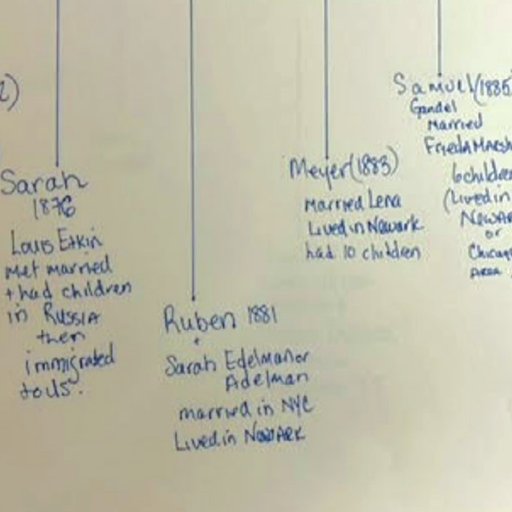 2)
Sarah
1876
Louis Etkin
Met married
+ had children
in RUSSIA
then
immigrated
to US.
Ruben 1881
+
Sarah Edelman or
Adelman
married in NYC
Lived in Newark
Meyer (1883)
Married Lena
Lived in Newark
had 10 children
Samuel (1885)
Gandel
Married
Frieda
6 children
(Lived in
Newark
or
Chicago
Area